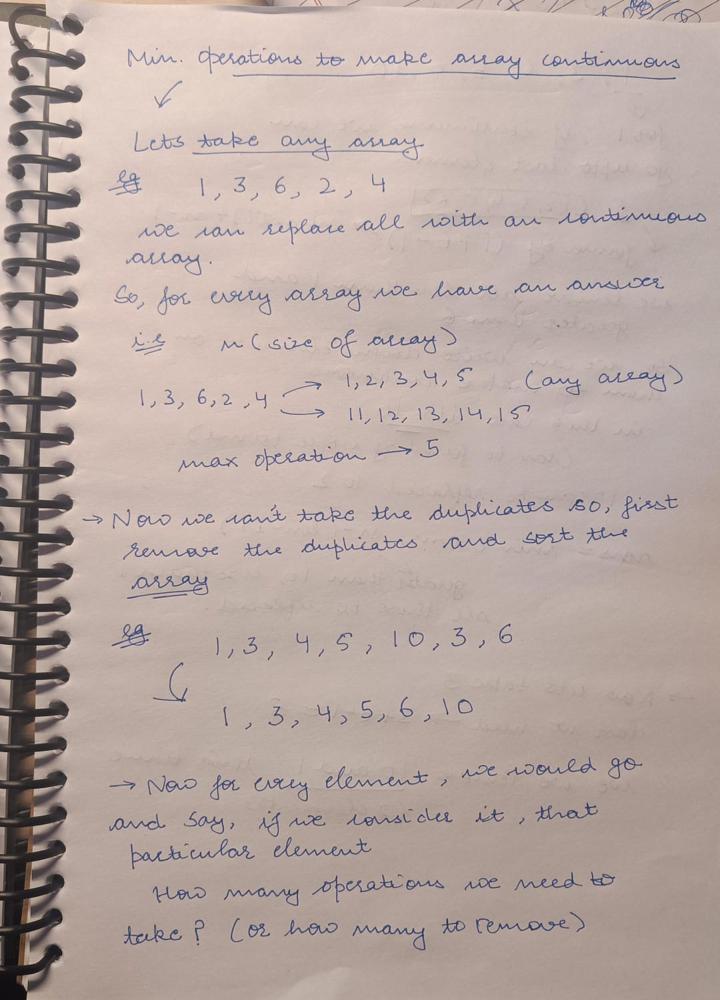 Min. operations to make array continuous
Lets take any array
eg 1, 3, 6, 2, 4
we can replace all with an continuous
array.
So, for every array we have an answer
i.e n (size of array)
1, 3, 6, 2, 4 → 1, 2, 3, 4, 5 (any array)
→ 11, 12, 13, 14, 15
max operation → 5
→ Now we can't take the duplicates so, first
remove the duplicates and sort the
array
eg 1, 3, 4, 5, 10, 3, 6
1, 3, 4, 5, 6, 10
→ Now for every element, we would go
and say, if we consider it, that
particular element
How many operations we need to
take? (or how many to remove)